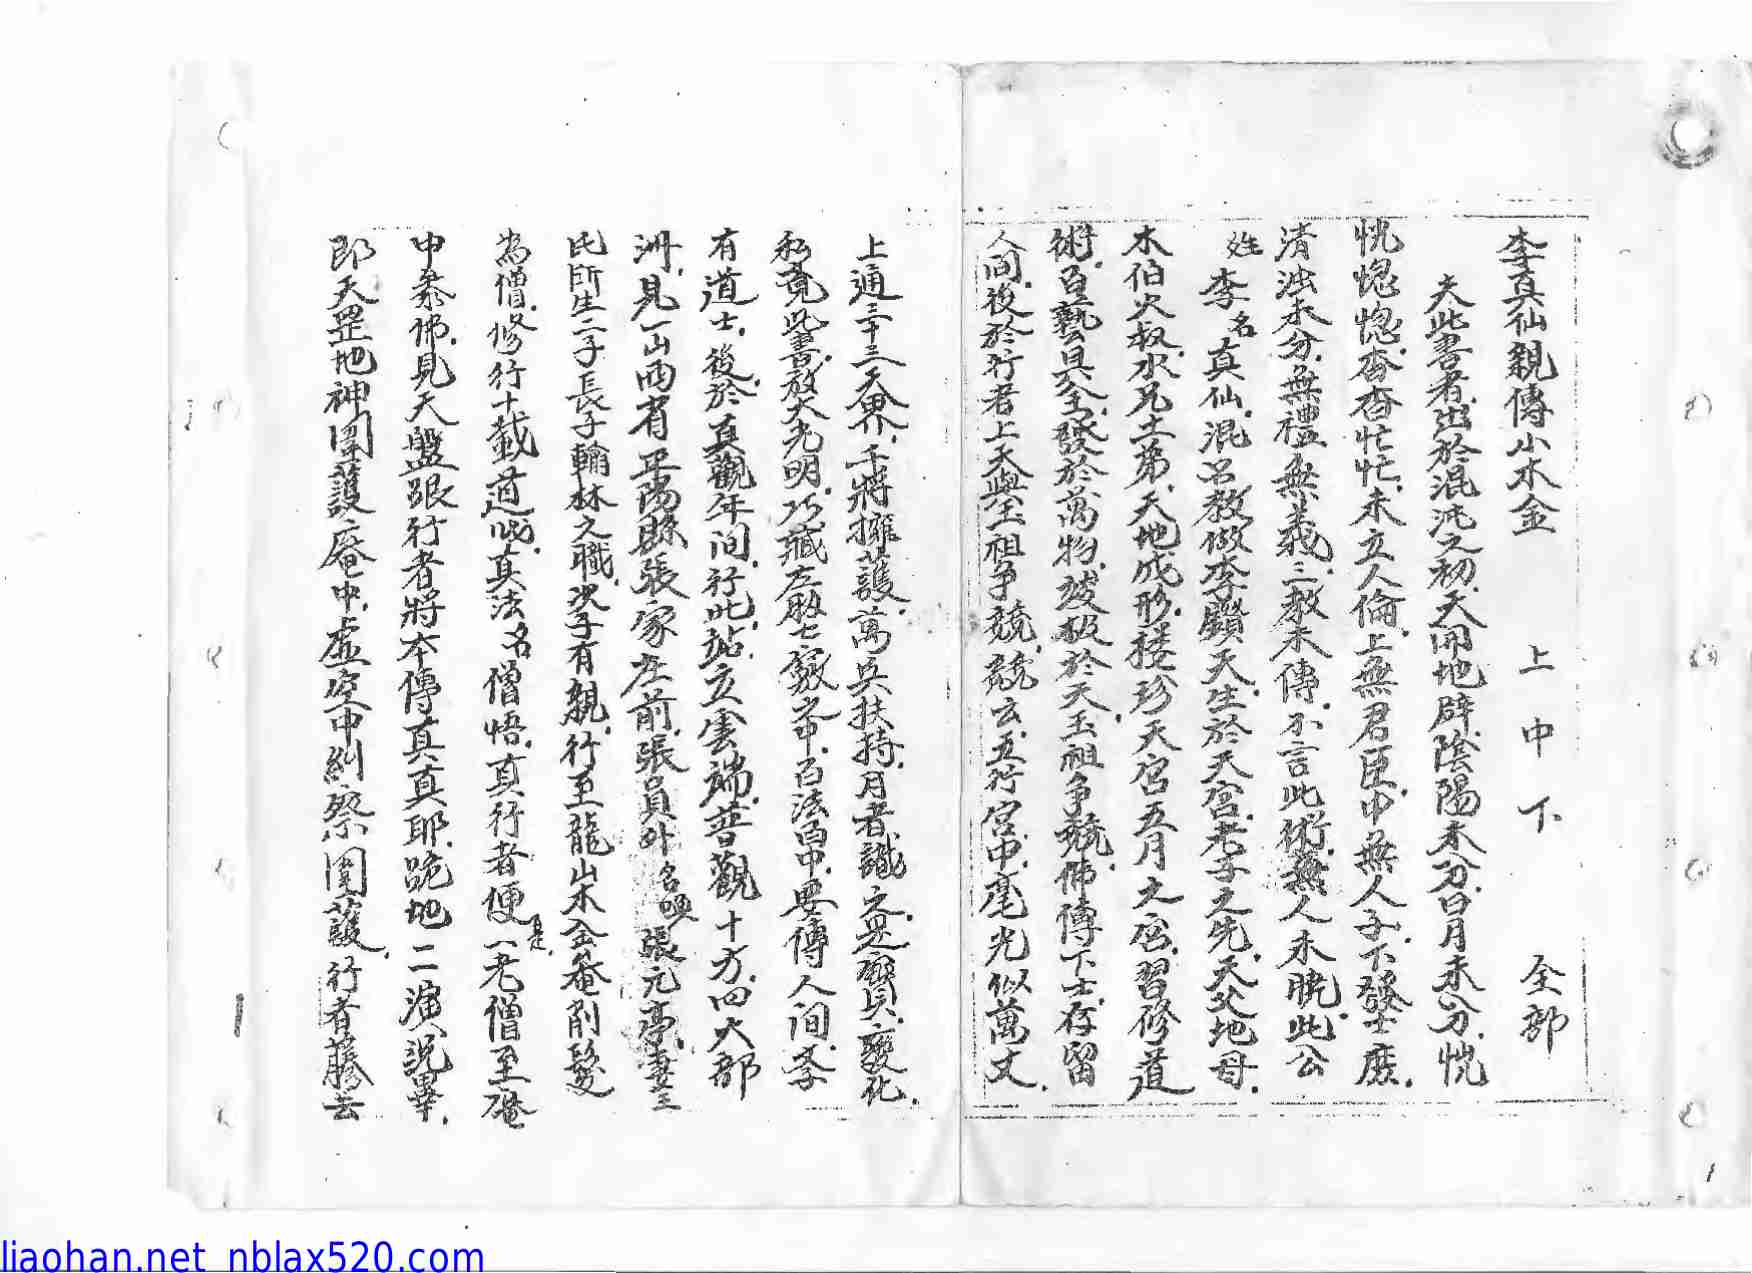 李真仙親傳小木金 上中下 全部
夫此書者出於混沌之初天開地辟陰陽未分日月未分恍
恍惚惚杳杳忙忙未立人倫上無君臣中無人子下發士庶
清浊未分無禮無義三教未傳不言此術無人未曉此公
姓李名真仙混名教做李鬍天生於天宮老子之先天父地母
木伯火叔水兄土弟天地成形接珍天宮五月之宮習修道
術百藝具全發於萬物于天玉祖争競佛傳下士存留
人间後於行者上天與玉祖争競競玄五行宮中毫光似萬丈
上通三十三天界千將擁護萬兵扶持月者識之是寶貝變化
私竟此書放大光明巧藏左肋七竅之中百法百中要傳人间李
有道士後於真觀年间行此站立雲端普觀十方四大部
洲見一山西有平陽縣張家庄前張員外名喚張元亭妻王
氏所生二子長子翰林之職次子有親行至龍山木金菴削髮
為僧修行十載道成真法名僧悟真行者便是一老僧至菴
中叅佛見天盤跟行者將本傳真真耶跪地一二演說畢
即天罡地神圍護庵中虚空中糾察圍護行者藤云
1
liaohan.net nblax520.com